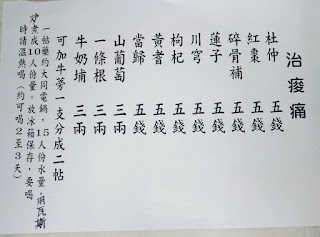 治痠痛
杜仲 五錢
紅棗 五錢
碎骨補 五錢
蓮子 五錢
川穹 五錢
枸杞 五錢
黃耆 五錢
當歸 五錢
山葡萄 三兩
一條根 三兩
牛奶埔 三兩
可加牛蒡一支分成二帖
一帖藥約大同電鍋，15人份水量，用瓦斯
炉煮成10人份量。放冰箱保存，要喝
時請溫熱喝（約可喝2至3天）